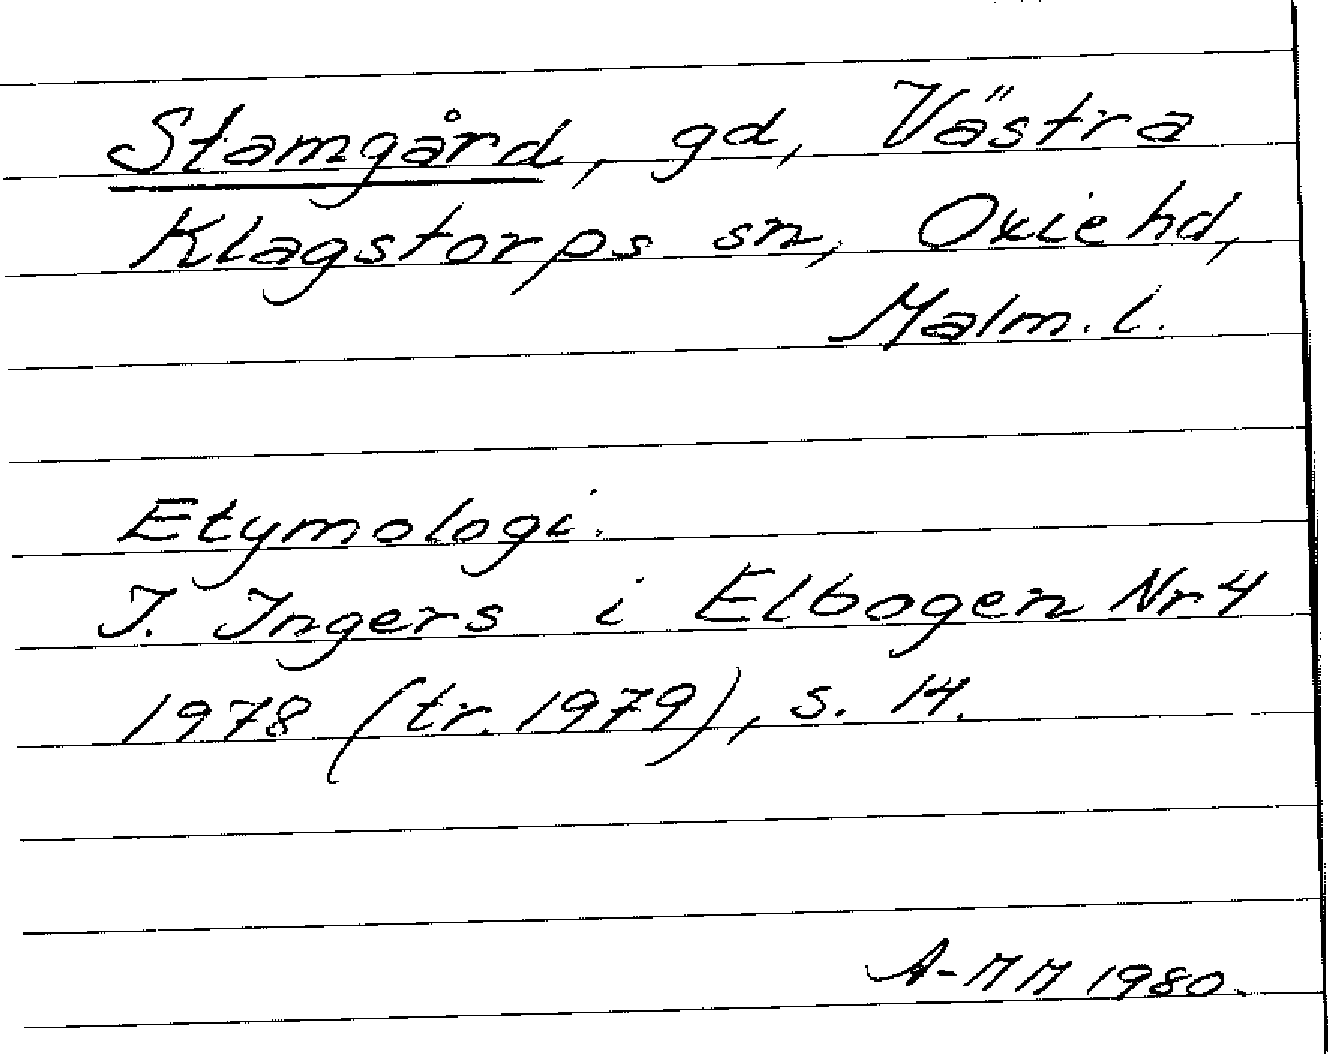 Stamgård, gd, Västra
Klagstorps sn, Oxie hd,
Malm. l.
Etymologi.
I. Ingers i Elbogen Nr 4
1978 (tr. 1979), s. 14.
A-MM 1980.